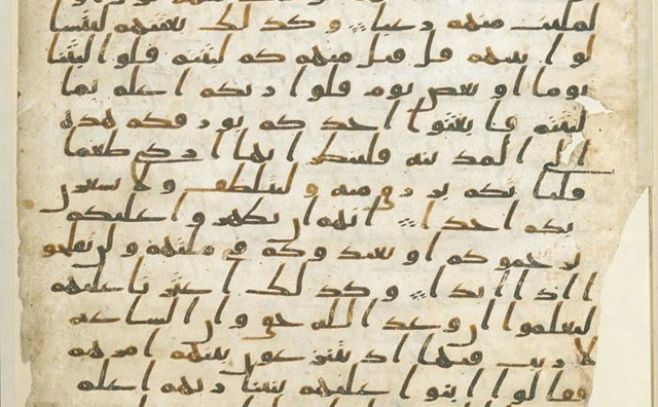 لملئت منهم رعبا وكذلك بعثنهم ليتسا
لوا بينهم قل قيل منهم كم لبثتم قلوا لبثنا
يوما او بعض يوم قلوا ربكم اعلم بما
لبثتم فابعثوا احدكم بورقكم هذه
الى المدينه فلينظر ايها ازكى طعما
فلياتكم برزق منه وليتلطف ولا يشعرن
بكم احدا انهم ان يظهروا عليكم
يرجموكم او يعيدوكم في ملتهم ولن تفلحو
ا اذا ابدا وكذلك اعثرنا عليهم
ليعلموا ان وعد الله حق وان الساعه
لا ريب فيها اذ يتنزعون بينهم امرهم
فقالوا ابنوا عليهم بنينا ربهم اعلم